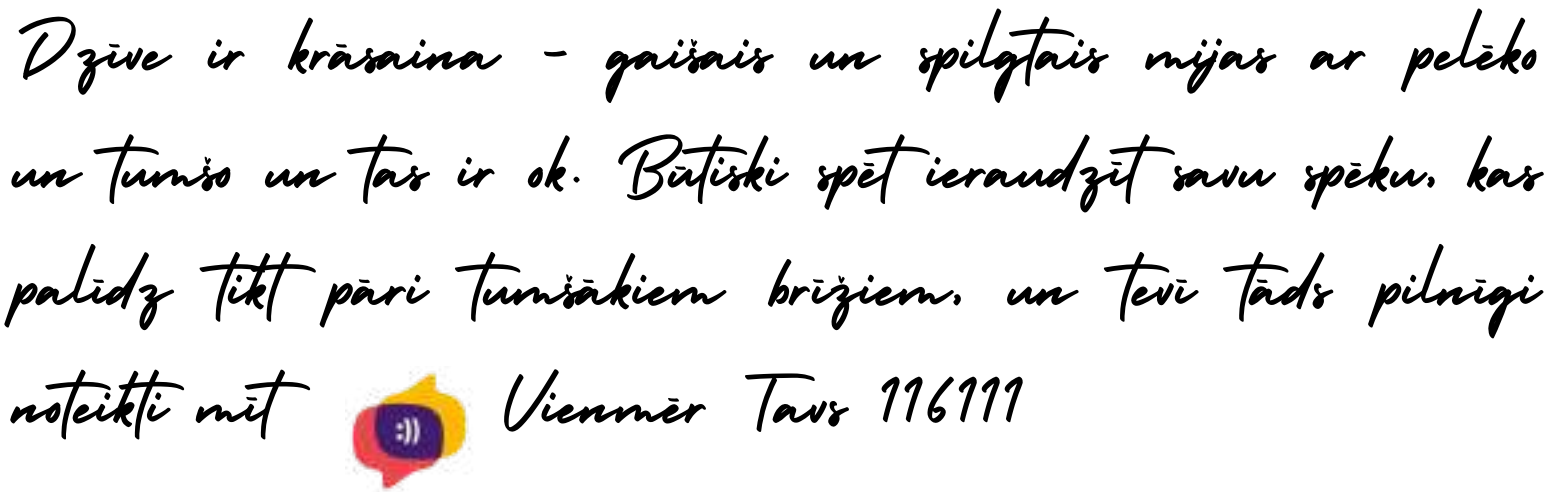 Dzīve ir krāsaina - gaišais un spilgtais mijas ar pelēko
un tumšo un tas ir ok. Būtiski spēt ieraudzīt savu spēku, kas
palīdz tikt pāri tumšākiem brīžiem, un tevī tāds pilnīgi
noteikti mīt :)) Vienmēr Tavs 116111